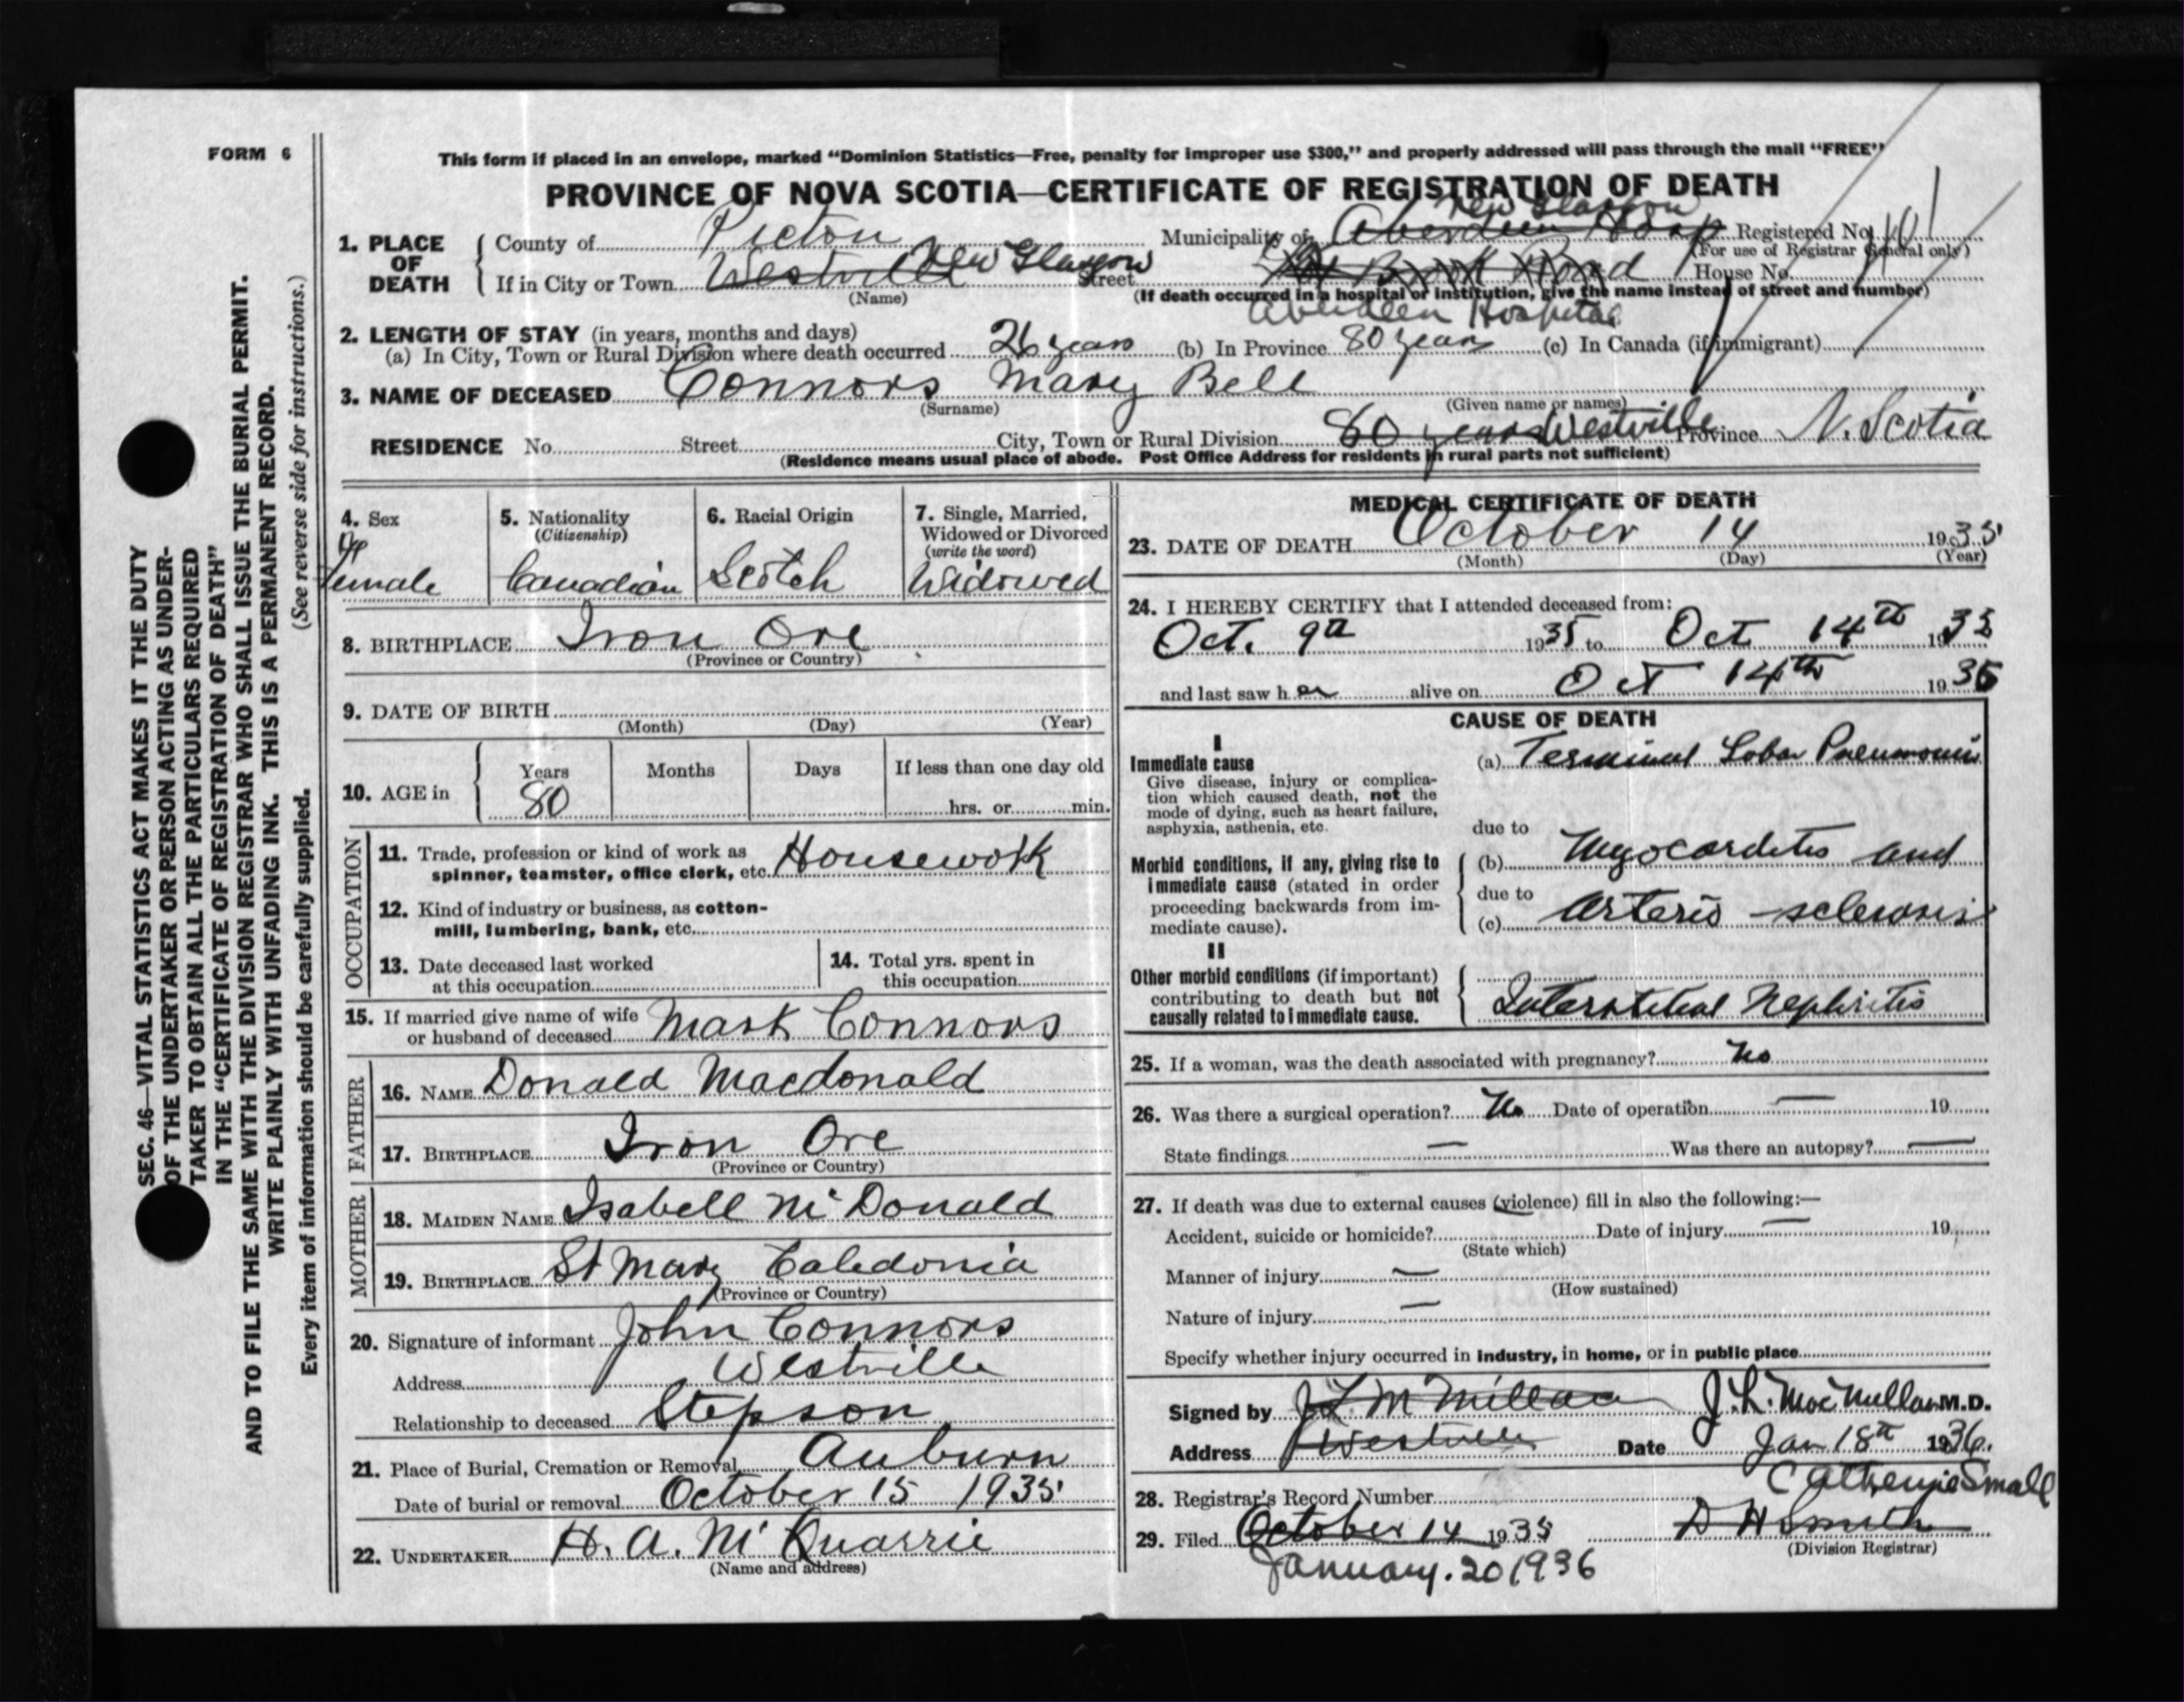 FORM 6
This form if placed in an envelope, marked “Dominion Statistics—Free, penalty for improper use $300,” and properly addressed will pass through the mail “FREE”
PROVINCE OF NOVA SCOTIA—CERTIFICATE OF REGISTRATION OF DEATH
1. PLACE OF DEATH
County of Pictou Municipality of Aberdeen Hosp New Glasgow Registered No.
(For use of Registrar General only)
If in City or Town Westville New Glasgow Street Brook Road House No.
(Name) (If death occurred in a hospital or institution, give the name instead of street and number)
Aberdeen Hospital
2. LENGTH OF STAY (in years, months and days)
(a) In City, Town or Rural Division where death occurred 26 years (b) In Province 80 years (c) In Canada (if immigrant)
3. NAME OF DECEASED Connors Mary Bell
(Surname) (Given name or names)
RESIDENCE No. Street City, Town or Rural Division 80 years Westville Province N. Scotia
(Residence means usual place of abode. Post Office Address for residents in rural parts not sufficient)
4. Sex
Female
5. Nationality
(Citizenship)
Canadian
6. Racial Origin
Scotch
7. Single, Married,
Widowed or Divorced
(write the word)
Widowed
8. BIRTHPLACE Iron Ore
(Province or Country)
9. DATE OF BIRTH
(Month) (Day) (Year)
10. AGE in
Years Months Days If less than one day old
80 hrs. or min.
OCCUPATION
11. Trade, profession or kind of work as
spinner, teamster, office clerk, etc. Housework
12. Kind of industry or business, as cotton-
mill, lumbering, bank, etc.
13. Date deceased last worked
at this occupation
14. Total yrs. spent in
this occupation
15. If married give name of wife
or husband of deceased Mark Connors
FATHER
16. NAME Donald Macdonald
17. BIRTHPLACE Iron Ore
(Province or Country)
MOTHER
18. MAIDEN NAME Isabell Mc Donald
19. BIRTHPLACE St Mary Caledonia
(Province or Country)
20. Signature of informant John Connors
Address Westville
Relationship to deceased Stepson
21. Place of Burial, Cremation or Removal Auburn
Date of burial or removal October 15 1935
22. UNDERTAKER H. A. Mc Quarrie
(Name and address)
MEDICAL CERTIFICATE OF DEATH
23. DATE OF DEATH October 14 1935
(Month) (Day) (Year)
24. I HEREBY CERTIFY that I attended deceased from:
Oct. 9th 1935 to Oct 14th 1935
and last saw her alive on Oct 14th 1935
CAUSE OF DEATH
I
Immediate cause
Give disease, injury or complica-
tion which caused death, not the
mode of dying, such as heart failure,
asphyxia, asthenia, etc.
(a) Terminal Lobar Pneumonia
due to
Morbid conditions, if any, giving rise to
immediate cause (stated in order
proceeding backwards from im-
mediate cause).
(b) Myocarditis and
due to
(c) Arterio-sclerosis
II
Other morbid conditions (if important)
contributing to death but not
causally related to immediate cause.
Interstitial Nephritis
25. If a woman, was the death associated with pregnancy? No
26. Was there a surgical operation? No Date of operation — 19
State findings — Was there an autopsy? —
27. If death was due to external causes (violence) fill in also the following:—
Accident, suicide or homicide? Date of injury — 19
(State which)
Manner of injury —
(How sustained)
Nature of injury —
Specify whether injury occurred in industry, in home, or in public place
Signed by J L McMillan J. L. MacMillan M.D.
Address Westville Date Jan 18th 1936.
Catherine Small
28. Registrar's Record Number
29. Filed October 14 1935 D H Smith
(Division Registrar)
January. 20 1936
SEC. 46—VITAL STATISTICS ACT MAKES IT THE DUTY
OF THE UNDERTAKER OR PERSON ACTING AS UNDER-
TAKER TO OBTAIN ALL THE PARTICULARS REQUIRED
IN THE “CERTIFICATE OF REGISTRATION OF DEATH”
AND TO FILE THE SAME WITH THE DIVISION REGISTRAR WHO SHALL ISSUE THE BURIAL PERMIT.
WRITE PLAINLY WITH UNFADING INK. THIS IS A PERMANENT RECORD.
Every item of information should be carefully supplied. (See reverse side for instructions.)